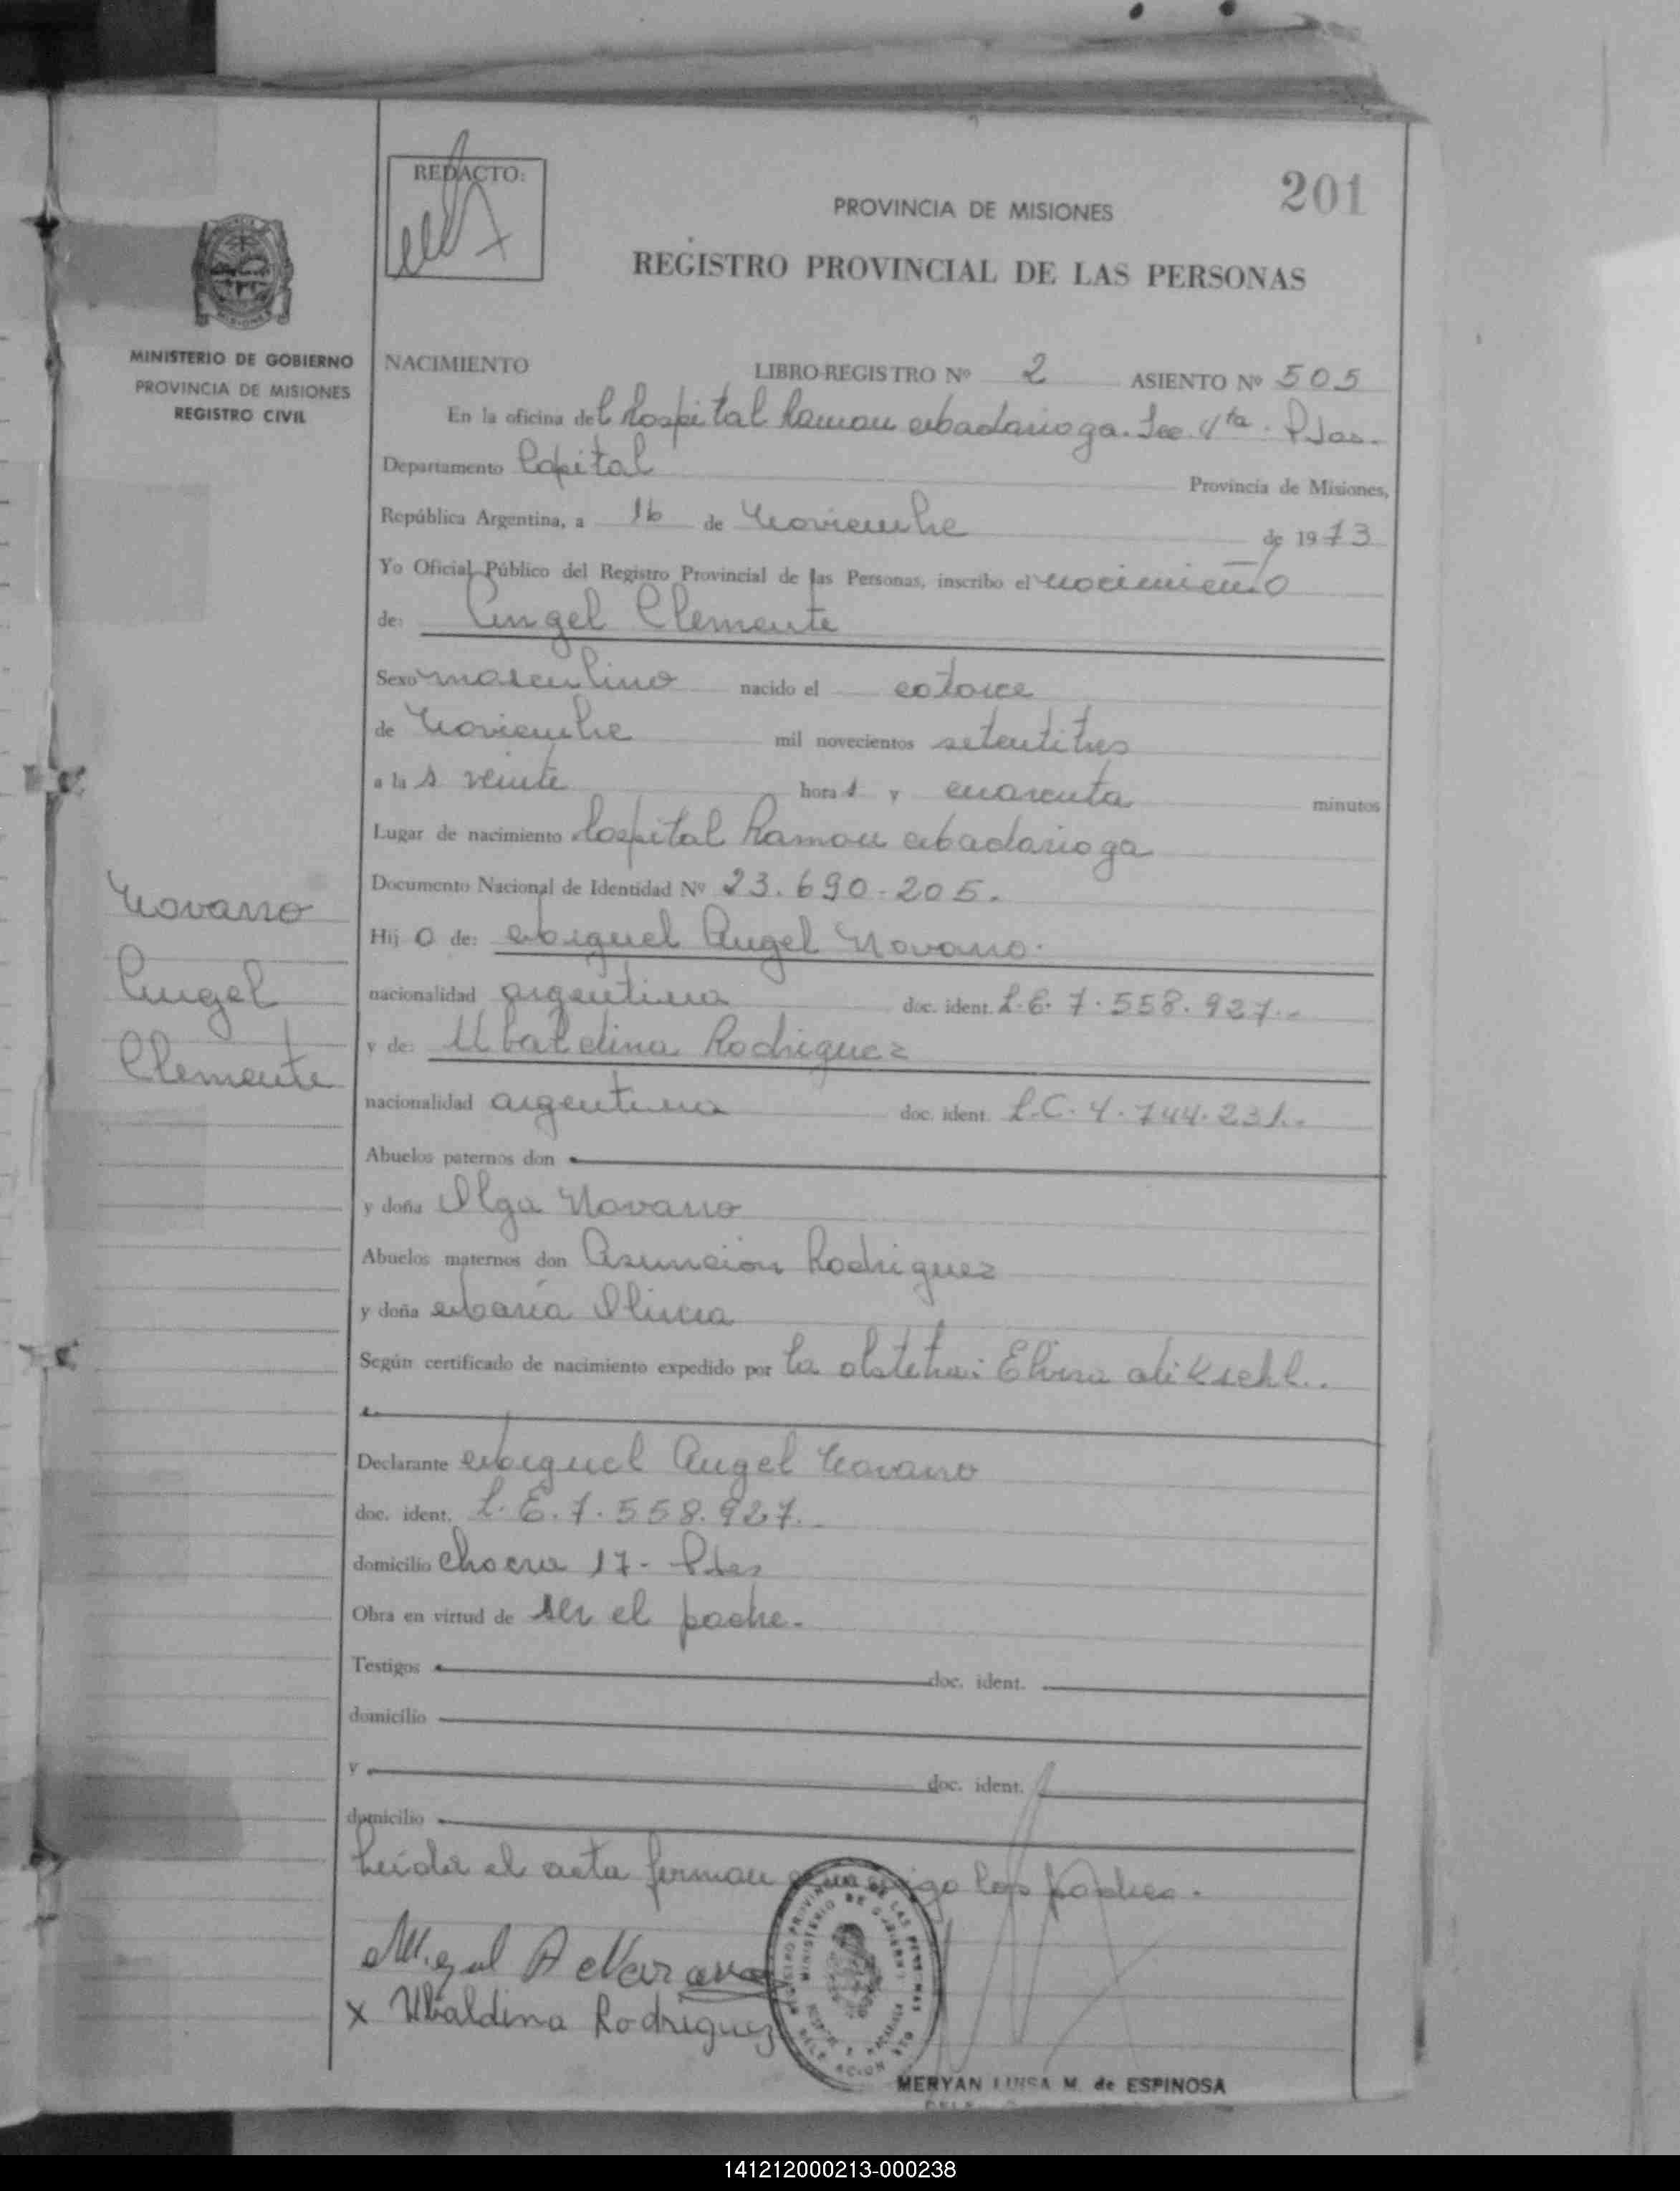 REDACTO:
201
PROVINCIA DE MISIONES
REGISTRO PROVINCIAL DE LAS PERSONAS
MINISTERIO DE GOBIERNO
PROVINCIA DE MISIONES
REGISTRO CIVIL
NACIMIENTO LIBRO-REGISTRO Nº 2 ASIENTO Nº 505
En la oficina del Hospital Ramon Madariaga. Sec. 4ta. Pdas.
Departamento Capital Provincia de Misiones,
República Argentina, a 16 de Noviembre de 1973
Yo Oficial Público del Registro Provincial de las Personas, inscribo el nacimiento
de: Angel Clemente
Sexo masculino nacido el catorce
de Noviembre mil novecientos setentitres
a las veinte horas y cuarenta minutos
Lugar de nacimiento Hospital Ramon Madariaga
Documento Nacional de Identidad Nº 23.690.205.
Navarro
Angel
Clemente
Hijo de: Miguel Angel Navarro.
nacionalidad argentina doc. ident. L.E. 7.558.927.-
y de: Ubaldina Rodriguez
nacionalidad argentina doc. ident. L.C. 4.744.231.-
Abuelos paternos don
y doña Olga Navarro
Abuelos maternos don Asuncion Rodriguez
y doña María
Según certificado de nacimiento expedido por la obstetra: Elvira
Declarante Miguel Angel Navarro
doc. ident. L.E. 7.558.927.-
domicilio Chacra 17- Pdas
Obra en virtud de ser el padre.-
Testigos doc. ident.
domicilio
y doc. ident.
domicilio
Leida el acta firman conmigo los padres.
Miguel A Navarro
x Ubaldina Rodriguez
REGISTRO PROVINCIAL DE LAS PERSONAS
MINISTERIO DE GOBIERNO
MERYAN LUISA M. de ESPINOSA
141212000213-000238